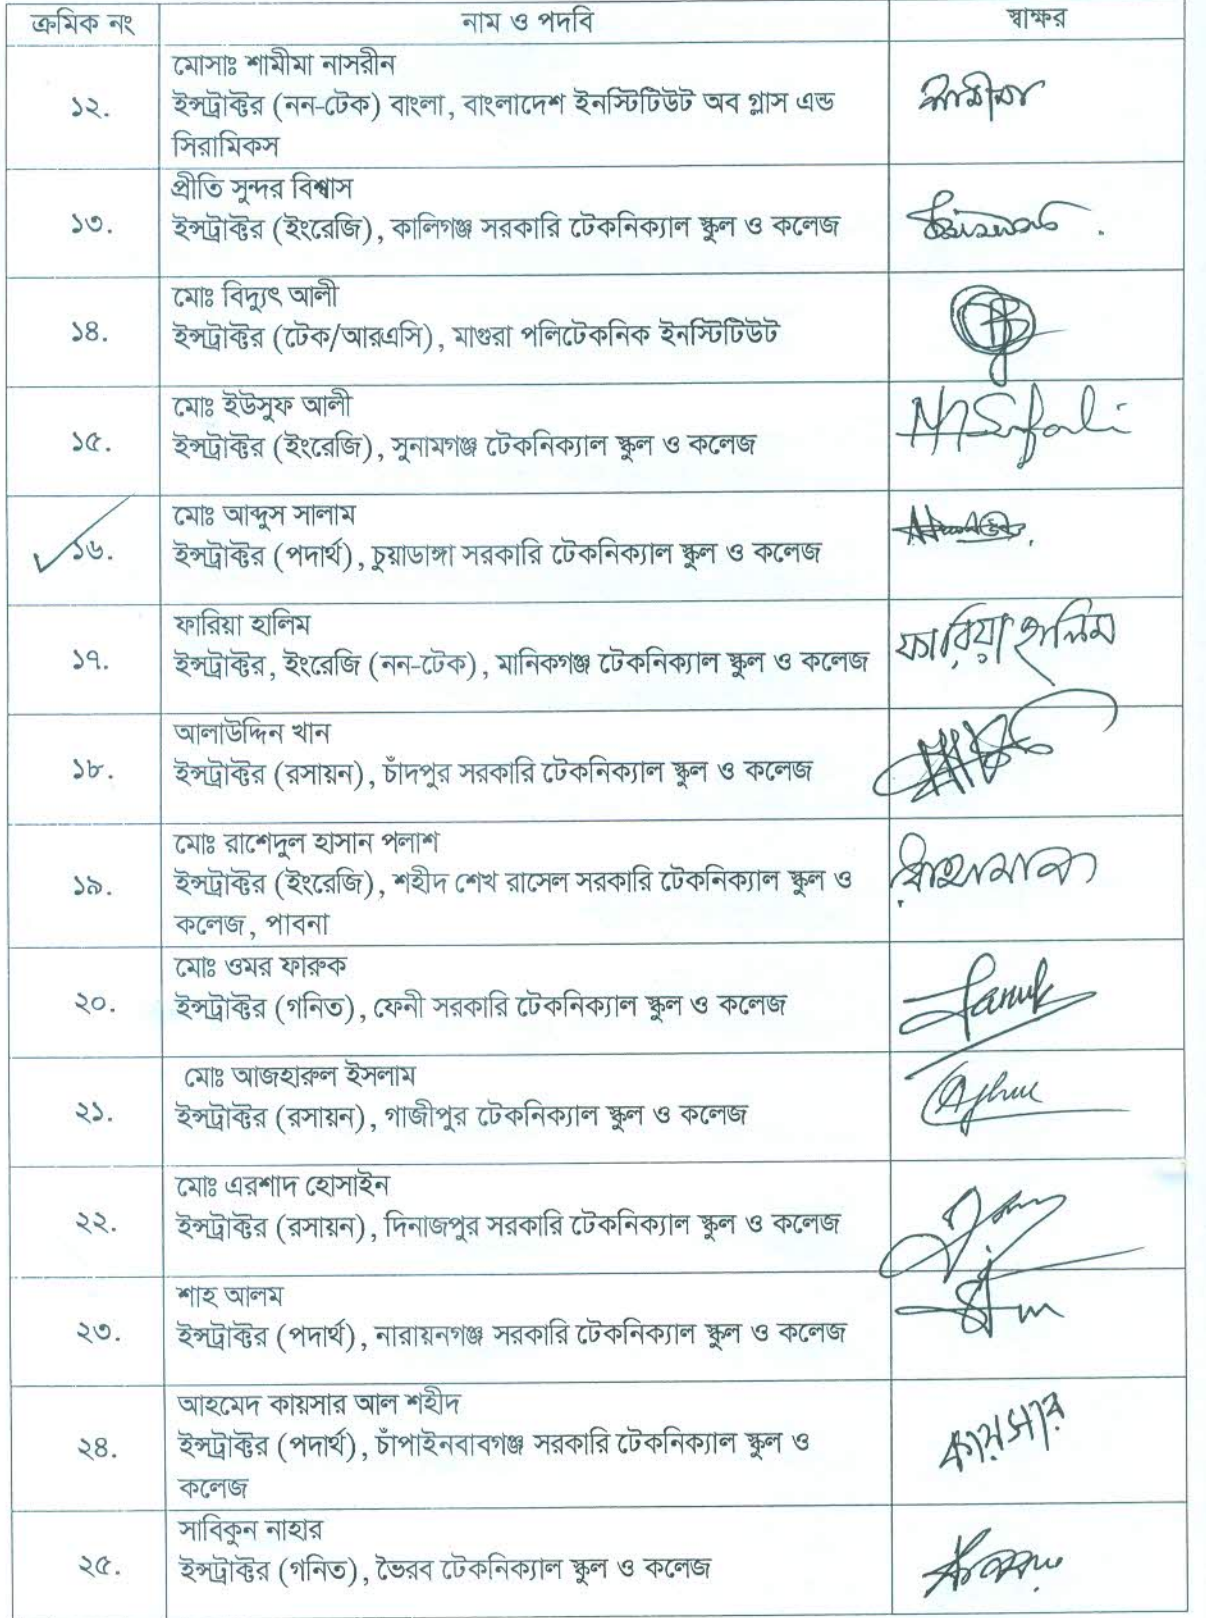 ক্রমিক নং নাম ও পদবি স্বাক্ষর
মোসাঃ শামীমা নাসরীন
১২. ইন্সট্রাক্টর (নন-টেক) বাংলা, বাংলাদেশ ইনস্টিটিউট অব গ্লাস এন্ড শামীমা
সিরামিকস
প্রীতি সুন্দর বিশ্বাস
১৩. ইন্সট্রাক্টর (ইংরেজি), কালিগঞ্জ সরকারি টেকনিক্যাল স্কুল ও কলেজ
মোঃ বিদ্যুৎ আলী
১৪. ইন্সট্রাক্টর (টেক/আরএসি), মাগুরা পলিটেকনিক ইনস্টিটিউট
মোঃ ইউসুফ আলী
১৫. ইন্সট্রাক্টর (ইংরেজি), সুনামগঞ্জ টেকনিক্যাল স্কুল ও কলেজ
মোঃ আব্দুস সালাম
১৬. ইন্সট্রাক্টর (পদার্থ), চুয়াডাঙ্গা সরকারি টেকনিক্যাল স্কুল ও কলেজ
ফারিয়া হালিম
১৭. ইন্সট্রাক্টর, ইংরেজি (নন-টেক), মানিকগঞ্জ টেকনিক্যাল স্কুল ও কলেজ ফারিয়া হালিম
আলাউদ্দিন খান
১৮. ইন্সট্রাক্টর (রসায়ন), চাঁদপুর সরকারি টেকনিক্যাল স্কুল ও কলেজ
মোঃ রাশেদুল হাসান পলাশ
১৯. ইন্সট্রাক্টর (ইংরেজি), শহীদ শেখ রাসেল সরকারি টেকনিক্যাল স্কুল ও
কলেজ, পাবনা
মোঃ ওমর ফারুক
২০. ইন্সট্রাক্টর (গনিত), ফেনী সরকারি টেকনিক্যাল স্কুল ও কলেজ Faruk
মোঃ আজহারুল ইসলাম
২১. ইন্সট্রাক্টর (রসায়ন), গাজীপুর টেকনিক্যাল স্কুল ও কলেজ
মোঃ এরশাদ হোসাইন
২২. ইন্সট্রাক্টর (রসায়ন), দিনাজপুর সরকারি টেকনিক্যাল স্কুল ও কলেজ
শাহ আলম
২৩. ইন্সট্রাক্টর (পদার্থ), নারায়নগঞ্জ সরকারি টেকনিক্যাল স্কুল ও কলেজ
আহমেদ কায়সার আল শহীদ
২৪. ইন্সট্রাক্টর (পদার্থ), চাঁপাইনবাবগঞ্জ সরকারি টেকনিক্যাল স্কুল ও কায়সার
কলেজ
সাবিকুন নাহার
২৫. ইন্সট্রাক্টর (গনিত), ভৈরব টেকনিক্যাল স্কুল ও কলেজ